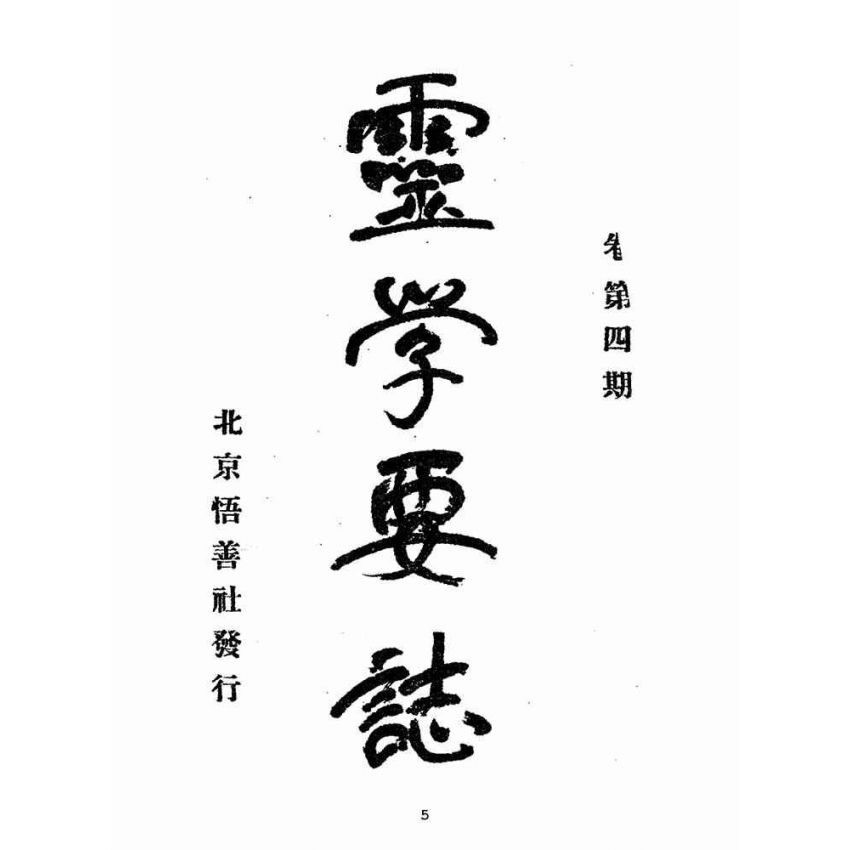 第四期
靈学要誌
北京悟善社發行
5